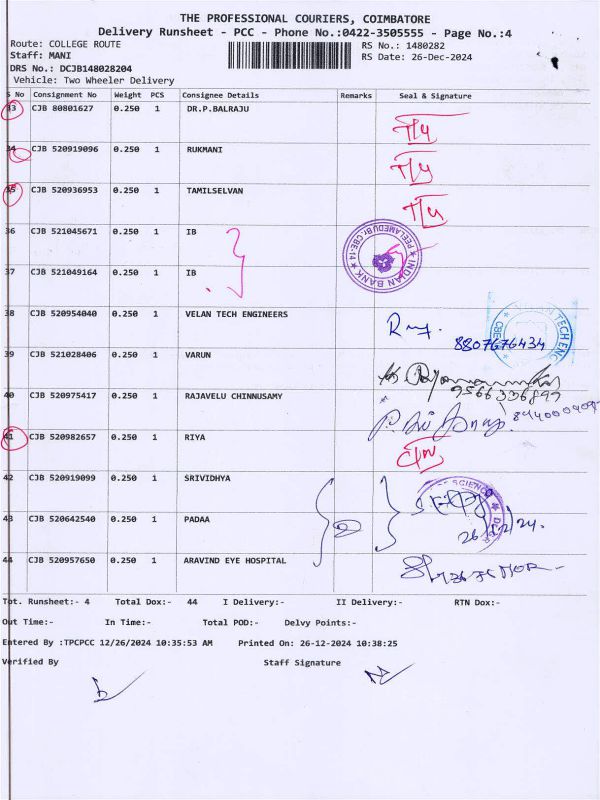 THE PROFESSIONAL COURIERS, COIMBATORE
Delivery Runsheet - PCC - Phone No.:0422-3505555 - Page No.:4
Route: COLLEGE ROUTE RS No.: 1480282
Staff: MANI RS Date: 26-Dec-2024
DRS No.: DCJB148028204
Vehicle: Two Wheeler Delivery
S No Consignment No Weight PCS Consignee Details Remarks Seal & Signature
33 CJB 80801627 0.250 1 DR.P.BALRAJU
34 CJB 520919096 0.250 1 RUKMANI
35 CJB 520936953 0.250 1 TAMILSELVAN
36 CJB 521045671 0.250 1 IB
PEELAMEDU BR. CBE-14 INDIAN BANK
37 CJB 521049164 0.250 1 IB
38 CJB 520954040 0.250 1 VELAN TECH ENGINEERS
8807676434
39 CJB 521028406 0.250 1 VARUN
9566336897
40 CJB 520975417 0.250 1 RAJAVELU CHINNUSAMY
41 CJB 520982657 0.250 1 RIYA
42 CJB 520919099 0.250 1 SRIVIDHYA
43 CJB 520642540 0.250 1 PADAA
26/12/24.
44 CJB 520957650 0.250 1 ARAVIND EYE HOSPITAL
Tot. Runsheet:- 4 Total Dox:- 44 I Delivery:- II Delivery:- RTN Dox:-
Out Time:- In Time:- Total POD:- Delvy Points:-
Entered By :TPCPCC 12/26/2024 10:35:53 AM Printed On: 26-12-2024 10:38:25
Verified By Staff Signature